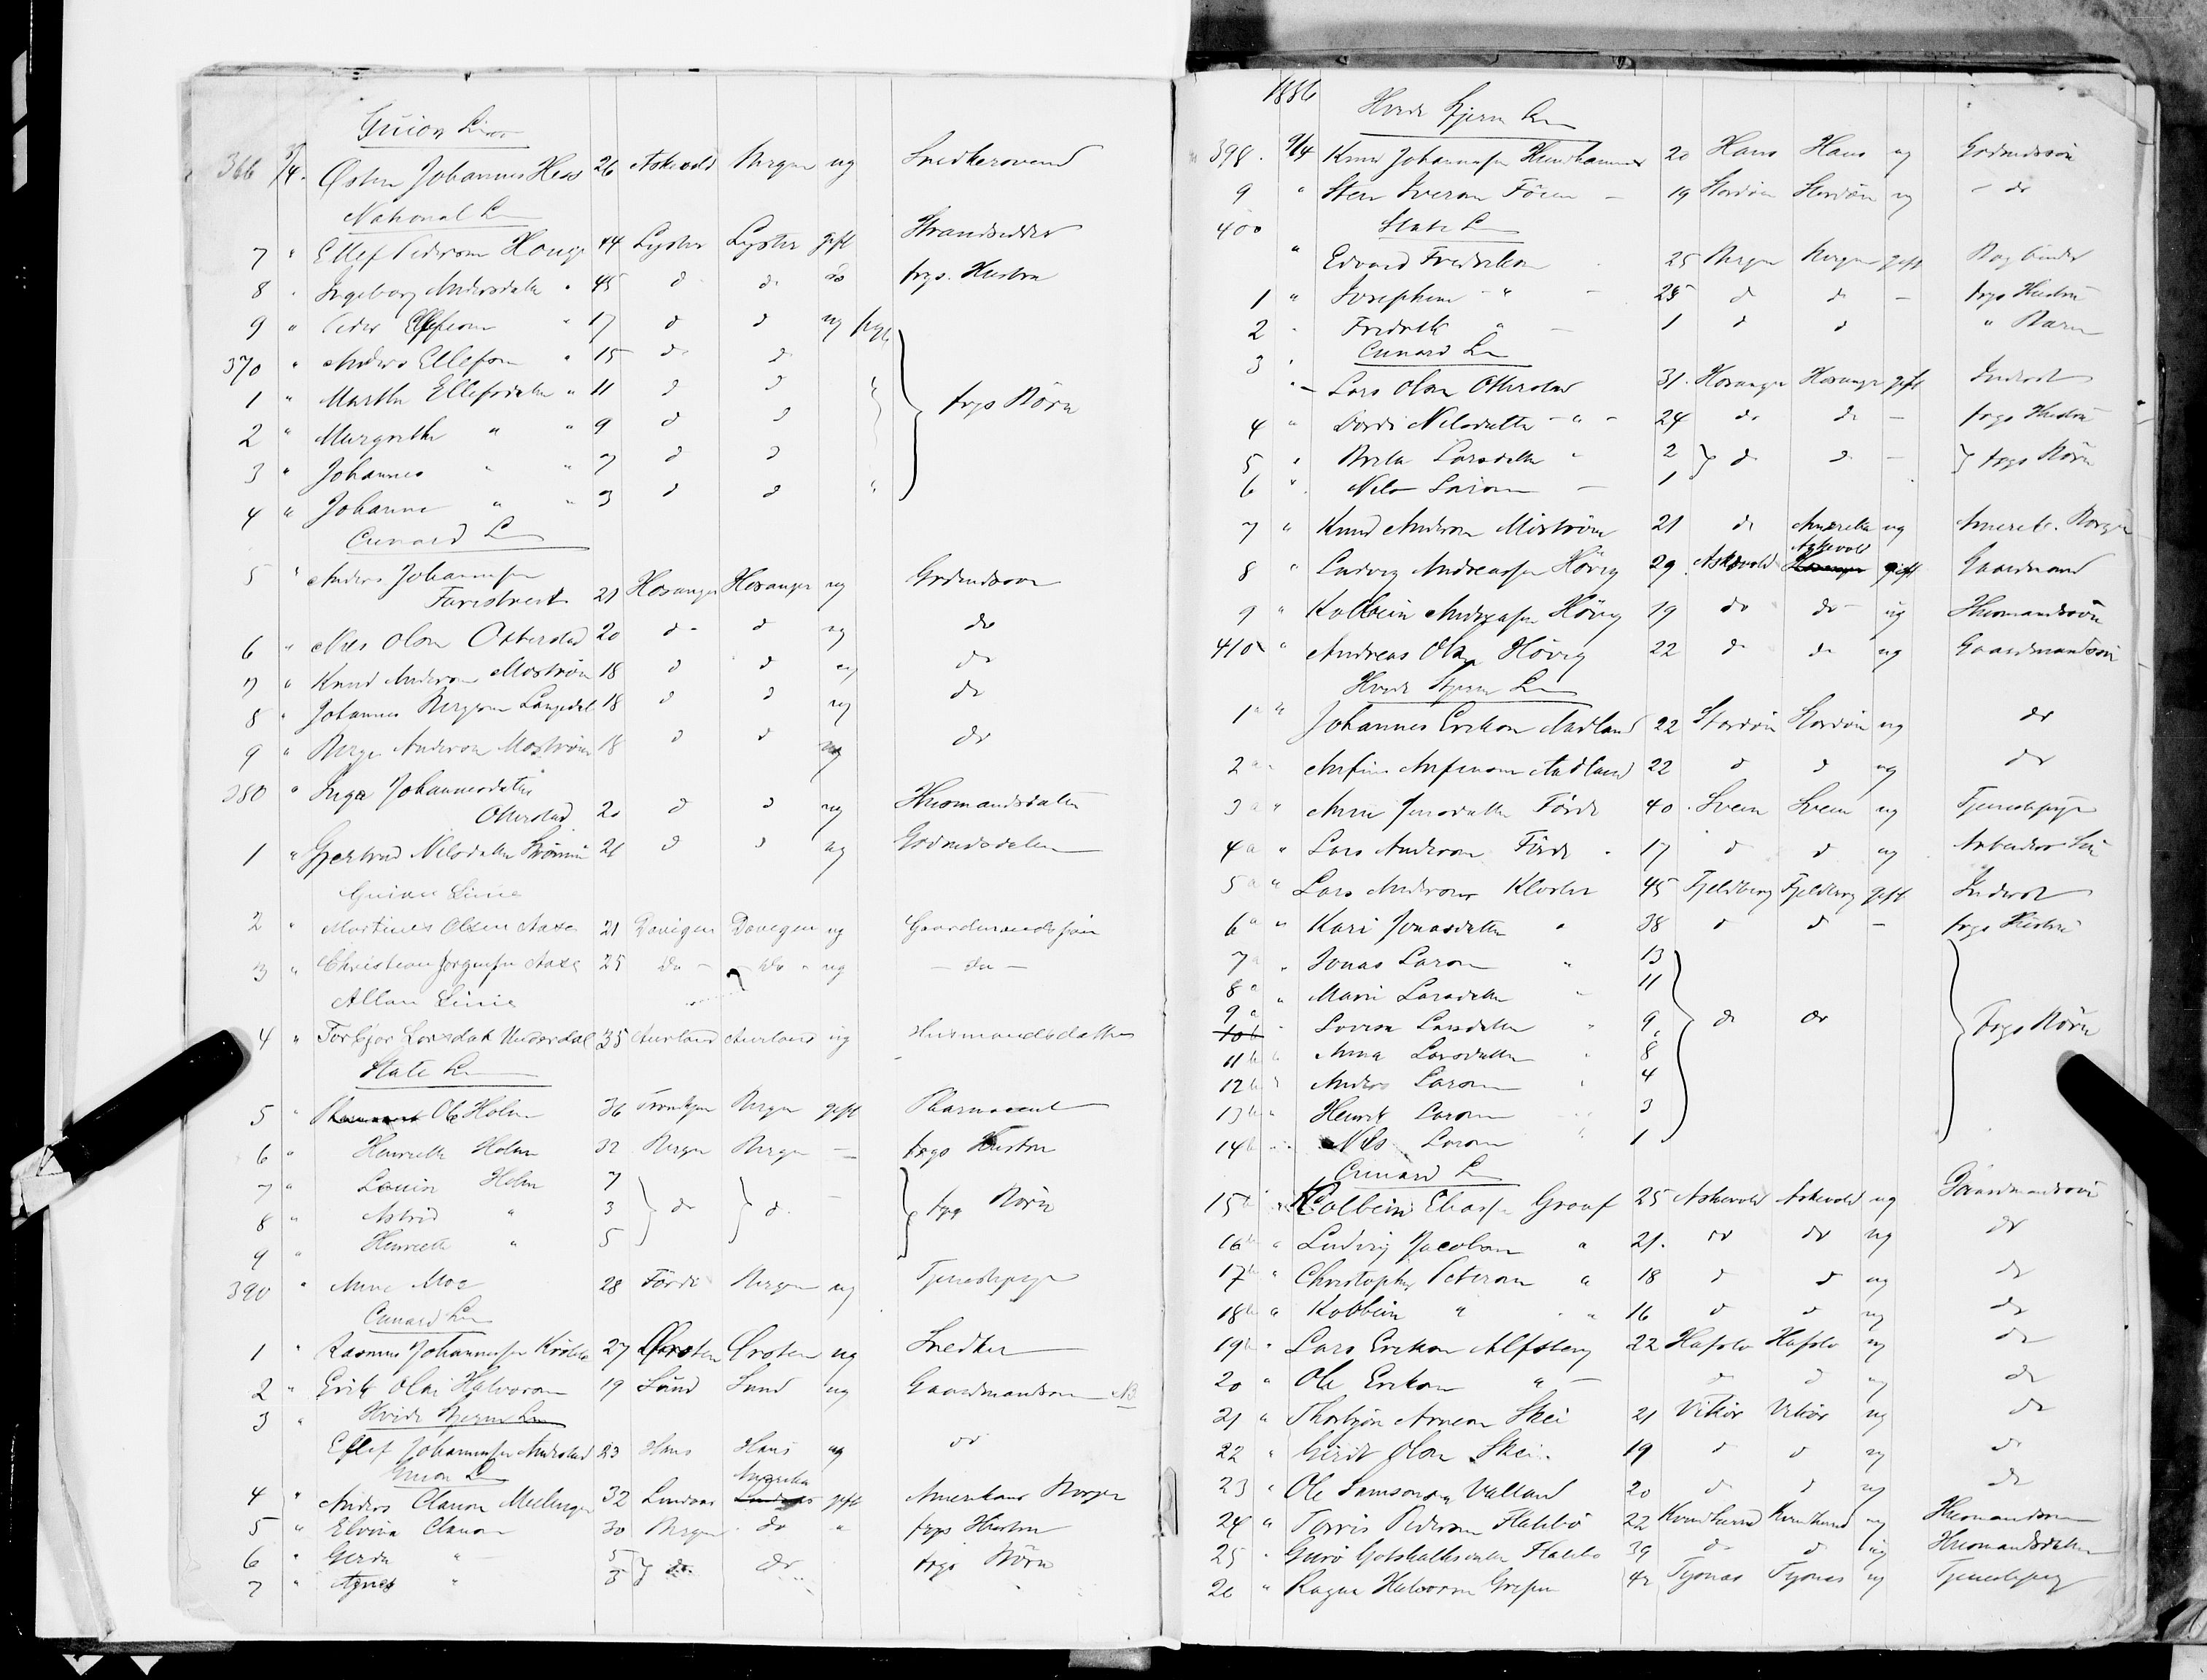 Guion Linie
366 9/4. Østen Johannes Hess 26 Askevold Bergen ug Snedkersvend
National L
7 " Ellef Pedersen Houge 44 Lyster Lyster gift Strandsidder
8 " Ingeborg Andersdatter " 45 d d do frgs. Hustru
9 " Peder Ellefsen " 17 d d ug
370 " Anders Ellefsen " 15 d d
1 " Martha Ellefsdatter " 11 d d frgs Børn
2 " Margrethe " " 9 d d
3 " Johannes " " 7 d d
4 " Johanne " " 3 d d
Cunard L
5 " Anders Johannesen
Farestveit 21 Hosanger Hosanger ug Grdmdssøn
6 " Nils Olsen Otterstad 20 d d ug do
7 " Knud Andersen Mostrøm 18 d d ug do
8 " Johannes Bergesen Langedal 18 d d ug do
9 " Berge Andersen Mostrøm 18 d d ug do
380 " Inga Johannesdatter
Otterstad 20 d d ug Husmandsdatter
1 " Gjertrud Nilsdatter 21 d d ug Grdmdsdatter
Guion Linie
2 " Martines Olsen Aase 21 Davigen Davigen ug Gaardmandssøn
3 " Christian Jørgensen Aase 25 do do ug - do -
Allan Linie
4 " Torbjør Larsdatt Underdal 35 Aurland Aurland ug Husmandsdatter
State L
5 " Ole Holm 36 Trondhjem Bergen gift Pharmaceut
6 " Henriette Holm 32 Bergen Bergen - frgs Hustru
7 " Louise Holm 7
8 " Astrid " 3 do d frgs Børn
9 " Henriette " 5
390 " Anne Moe 28 Førde Bergen ug Tjenestepige
Cunard L
1 " Rasmus Johannesen 27 Ørsten Ørsten ug Snedker
2 " Erik Olai Halvorsen 19 Sund Sund ug Gaardmandssøn NB
3 " Hvide Stjerne L
Ellef Johannesen 23 Haus Haus ug do
Guion L
Amerika
4 " Anders Clausen 32 Lindaas Lindaas gift Amerikans Borger
5 " Elvina Clausen 30 Bergen do " frgs Hustru
6 " Gerda " 5 do do frgs Børn
7 " Agnes " 3
1886
Hvide Stjerne L
398. 9/4 Knud Johannesen Hundhammer 20 Haus Haus ug Grdmdssøn
9 " Sten Iversen 19 Stordøen Stordøen ug - do
400 State L
" Edvard Fredriksen 25 Bergen Bergen gift Bogbinder
1 " Josephine " 25 d d - frgs Hustru
2 " Fredrik " 1 d d " Barn
3 " Cunard L
Lars Olsen Otterstad 31. Hosanger Hosanger gift Inderst
4 " Dordi Nilsdatter " 24 do do - frgs Hustru
5 " Brita Larsdatter " 2 d d - frgs Børn
6 " Nils Larsen - 1
7 " Knud Andersen Mostrøm 21 do Amerika ug Amerik. Borger
Askevold
8 " Ludvig Andreassen Høvig 29 Askevold Hosanger gift Gaardmand
9 " Kolbein Andreassen Høvig 19 do do ug Husmandssøn
410 " Andreas Olsen Høvig 22 do do ug Gaardmandssøn
Hvide Stjerne L
1a " Johannes Eriksen Aadland 22 Stordøen Stordøen ug do
2a " Anfin Anfinsen Aadland 22 d d ug do
3a " Anne Jensdatter Førde 40 Sveen Sveen ug Tjenestepige
4a " Lars Andersen Førde 17 d d ug
5a " Lars Andersen Kloster 45 Fjeldberg Fjeldberg gift Inderst
6a " Kari Jonasdatter " 38 d d - frgs Hustru
7a " Jonas Larsen " 13
8a " Marie Larsdatter " 11
9a
10b " Lovisa Larsdatter " 9 do do Frgs Børn
11b " Anna Larsdatter " 8
12b " Anders Larsen " 4
13b " Henrik Larsen " 3
14b " Nils Larsen " 1
Cunard L
15b " Kolbein Eliassen 25 Askevold Askevold ug Gaardmandssøn
16b " Ludvig Jacobsen " 21. do do ug do
17b " Christopher Petersen " 18 d d ug do
18b " Kolbein " " 16 d d ug do
19b " Lars Eriksen Alfsberg 22 Hafslo Hafslo ug do
20 " Ole Eriksen " - d d ug do
21 " Thorbjøn Arnesen Skei 21 Vikør Vikør ug do
22 " Olsen Skei 19 d d ug do
23 " Ole Samsonsen Valland 20 d d ug do
24 " Torris Pedersen 22 Kvindherred Kvindherred ug Husmandssøn
25 " Guro 39 d d ug Husmandsdatter
26 " Ragna Halvorsen 42 Tysnæs Tysnæs ug Tjenestepige